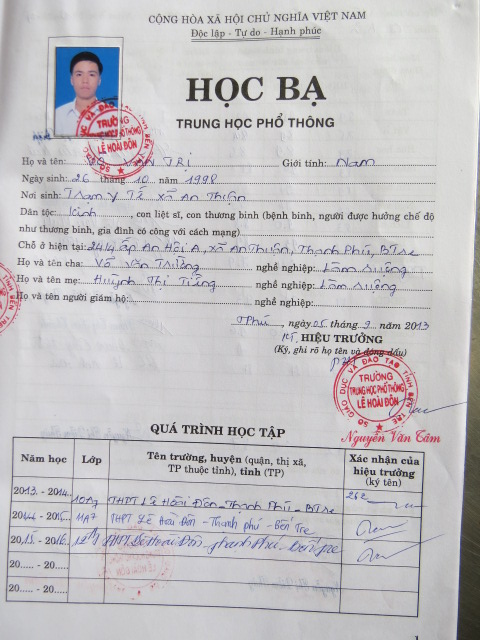 CỘNG HÒA XÃ HỘI CHỦ NGHĨA VIỆT NAM
Độc lập - Tự do - Hạnh phúc
HỌC BẠ
TRUNG HỌC PHỔ THÔNG
Họ và tên: VÕ VĂN TRỊ Giới tính: Nam
Ngày sinh: 26 tháng 10 năm 1998
Nơi sinh: Trạm Y Tế xã An Thuận
Dân tộc: Kinh, con liệt sĩ, con thương binh (bệnh binh, người được hưởng chế độ
như thương binh, gia đình có công với cách mạng)
Chỗ ở hiện tại: 2414 ấp An Hội A, xã An Thuận, Thạnh Phú, BTre
Họ và tên cha: Võ Văn nghề nghiệp: Làm Ruộng
Họ và tên mẹ: Huỳnh Thị nghề nghiệp: Làm Ruộng
Họ và tên người giám hộ: nghề nghiệp:
TPhú, ngày 05 tháng 9 năm 2013
KT. HIỆU TRƯỞNG
(Ký, ghi rõ họ tên và đóng dấu)
SỞ GIÁO DỤC VÀ ĐÀO TẠO TỈNH BẾN TRE
TRƯỜNG
TRUNG HỌC PHỔ THÔNG
LÊ HOÀI ĐÔN
Nguyễn Văn Tâm
QUÁ TRÌNH HỌC TẬP
Năm học Lớp Tên trường, huyện (quận, thị xã, TP thuộc tỉnh), tỉnh (TP) Xác nhận của hiệu trưởng (ký tên)
2013 - 2014 10A7 THPT Lê Hoài Đôn - Thạnh Phú - BTre
2014 - 2015 11A7 THPT Lê Hoài Đôn - Thạnh phú - Bến Tre
2015 - 2016 THPT Lê Hoài Đôn - Thạnh Phú - Bến Tre
20..... - 20.....
20..... - 20.....
1